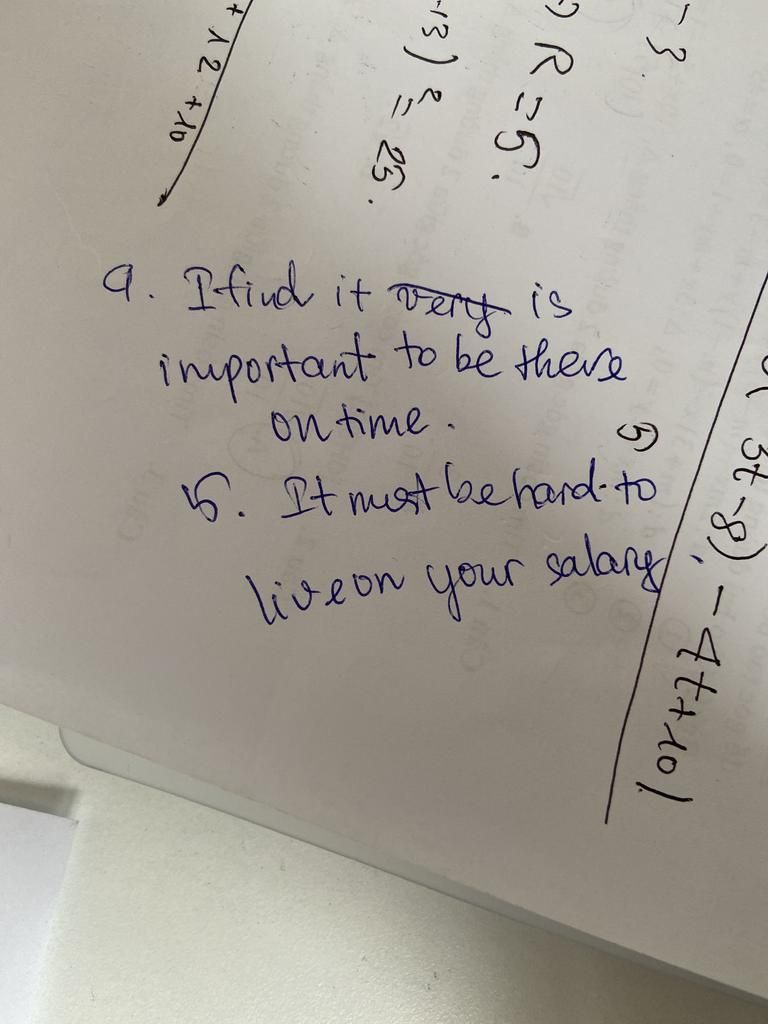 9. I find it very is
important to be there
on time.
15. It must be hard to
live on your salary
- 3.
R = 5.
-13)² = 25.
+ 12 + 10
5
3t - 8)
- 4t + 10)